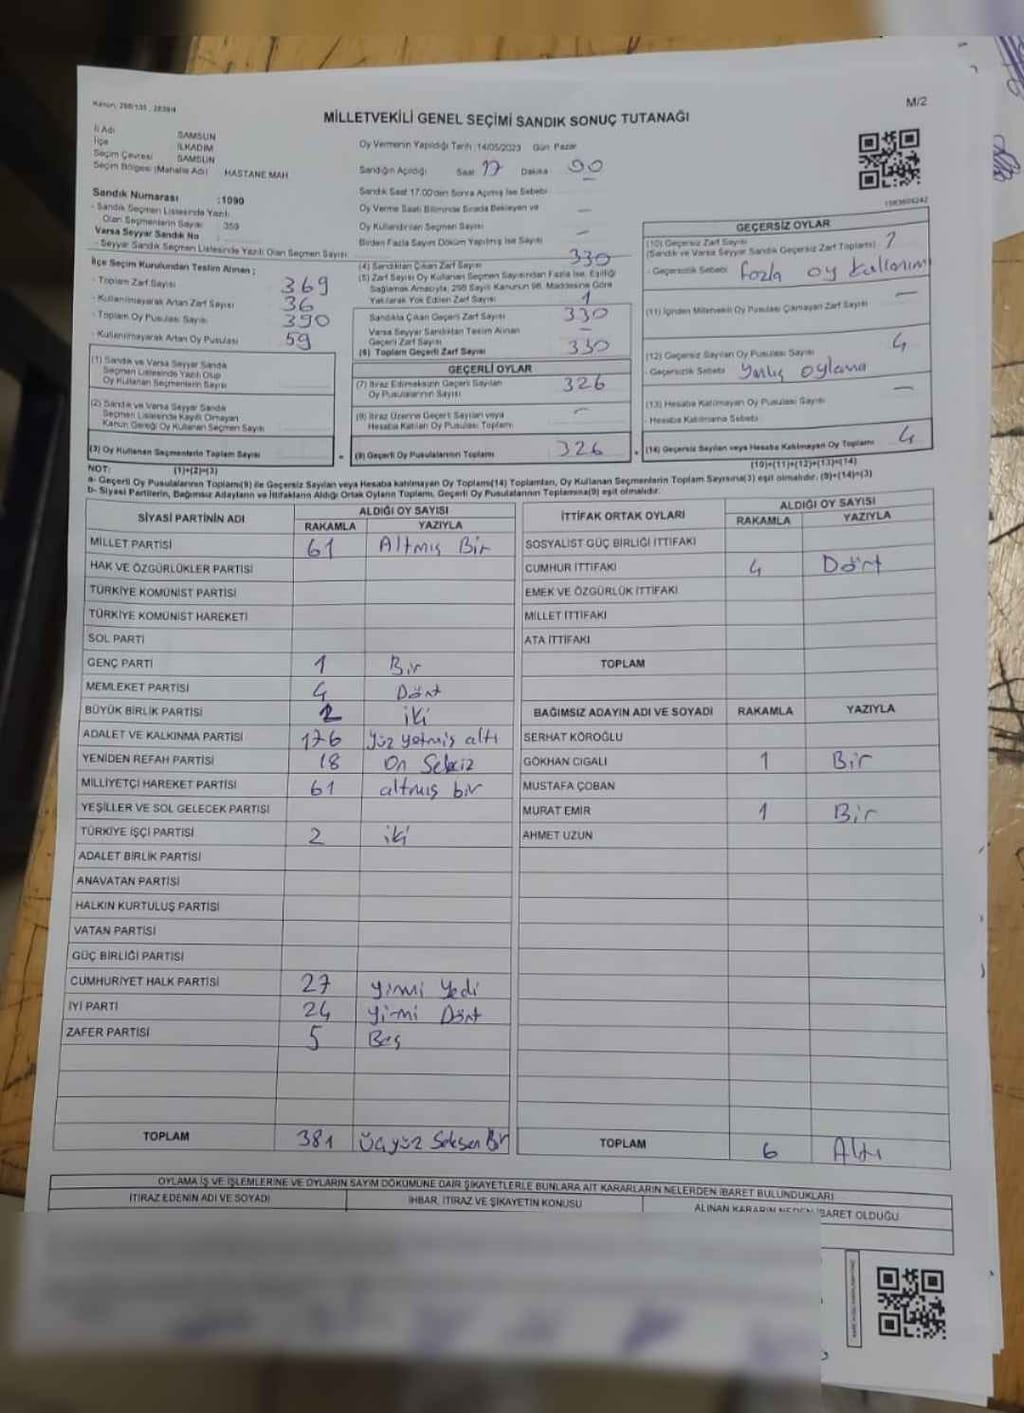 Kanun: 298/135, 2839/4
M/2
MİLLETVEKİLİ GENEL SEÇİMİ SANDIK SONUÇ TUTANAĞI
İl Adı SAMSUN
İlçe İLKADIM
Seçim Çevresi SAMSUN
Seçim Bölgesi (Mahalle Adı) HASTANE MAH
Sandık Numarası :1090
- Sandık Seçmen Listesinde Yazılı
Olan Seçmenlerin Sayısı 359
Varsa Seyyar Sandık No
- Seyyar Sandık Seçmen Listesinde Yazılı Olan Seçmen Sayısı
Oy Vermenin Yapıldığı Tarih :14/05/2023 Gün: Pazar
Sandığın Açıldığı Saat 17 Dakika 00
Sandık Saat 17:00'den Sonra Açılmış İse Sebebi
Oy Verme Saati Bitiminde Sırada Bekleyen ve
Oy Kullandırılan Seçmen Sayısı —
Birden Fazla Sayım Döküm Yapılmış İse Sayısı —
İlçe Seçim Kurulundan Teslim Alınan ;
- Toplam Zarf Sayısı 369
- Kullanılmayarak Artan Zarf Sayısı 36
- Toplam Oy Pusulası Sayısı 390
- Kullanılmayarak Artan Oy Pusulası 59
(1) Sandık ve Varsa Seyyar Sandık
Seçmen Listesinde Yazılı Olup
Oy Kullanan Seçmenlerin Sayısı
(2) Sandık ve Varsa Seyyar Sandık
Seçmen Listesinde Kayıtlı Olmayan
Kanun Gereği Oy Kullanan Seçmen Sayısı
(3) Oy Kullanan Seçmenlerin Toplam Sayısı
(1)+(2)=(3)
(4) Sandıktan Çıkan Zarf Sayısı 330
(5) Zarf Sayısı Oy Kullanan Seçmen Sayısından Fazla İse, Eşitliği
Sağlamak Amacıyla, 298 Sayılı Kanunun 98. Maddesine Göre
Yakılarak Yok Edilen Zarf Sayısı 1
Sandıkta Çıkan Geçerli Zarf Sayısı 330
Varsa Seyyar Sandıktan Teslim Alınan
Geçerli Zarf Sayısı —
(6) Toplam Geçerli Zarf Sayısı 330
GEÇERLİ OYLAR
(7) İtiraz Edilmeksizin Geçerli Sayılan
Oy Pusulalarının Sayısı 326
(8) İtiraz Üzerine Geçerli Sayılan veya
Hesaba Katılan Oy Pusulası Toplamı —
(9) Geçerli Oy Pusulalarının Toplamı 326
GEÇERSİZ OYLAR
(10) Geçersiz Zarf Sayısı
(Sandık ve Varsa Seyyar Sandık Geçersiz Zarf Toplamı)
- Geçersizlik Sebebi fazla oy kullanımı
(11) İçinden Milletvekili Oy Pusulası Çıkmayan Zarf Sayısı —
(12) Geçersiz Sayılan Oy Pusulası Sayısı 4
- Geçersizlik Sebebi Yanlış oylama
(13) Hesaba Katılmayan Oy Pusulası Sayısı —
- Hesaba Katılmama Sebebi
(14) Geçersiz Sayılan veya Hesaba Katılmayan Oy Toplamı 4
(10)+(11)+(12)+(13)=(14)
NOT:
a- Geçerli Oy Pusulalarının Toplamı(9) ile Geçersiz Sayılan veya Hesaba katılmayan Oy Toplamı(14) Toplamları, Oy Kullanan Seçmenlerin Toplam Sayısına(3) eşit olmalıdır. (9)+(14)=(3)
b- Siyasi Partilerin, Bağımsız Adayların ve İttifakların Aldığı Ortak Oyların Toplamı, Geçerli Oy Pusulalarının Toplamına(9) eşit olmalıdır.
SİYASİ PARTİNİN ADI ALDIĞI OY SAYISI
RAKAMLA YAZIYLA
MİLLET PARTİSİ 61 Altmış Bir
HAK VE ÖZGÜRLÜKLER PARTİSİ
TÜRKİYE KOMÜNİST PARTİSİ
TÜRKİYE KOMÜNİST HAREKETİ
SOL PARTİ
GENÇ PARTİ 1 Bir
MEMLEKET PARTİSİ 4 Dört
BÜYÜK BİRLİK PARTİSİ 2 iki
ADALET VE KALKINMA PARTİSİ 176 Yüz yetmiş altı
YENİDEN REFAH PARTİSİ 18 On Sekiz
MİLLİYETÇİ HAREKET PARTİSİ 61 altmış bir
YEŞİLLER VE SOL GELECEK PARTİSİ
TÜRKİYE İŞÇİ PARTİSİ 2 iki
ADALET BİRLİK PARTİSİ
ANAVATAN PARTİSİ
HALKIN KURTULUŞ PARTİSİ
VATAN PARTİSİ
GÜÇ BİRLİĞİ PARTİSİ
CUMHURİYET HALK PARTİSİ 27 yirmi Yedi
İYİ PARTİ 24 yirmi Dört
ZAFER PARTİSİ 5 Beş
TOPLAM 381 Üçyüz Seksen Bir
İTTİFAK ORTAK OYLARI ALDIĞI OY SAYISI
RAKAMLA YAZIYLA
SOSYALİST GÜÇ BİRLİĞİ İTTİFAKI
CUMHUR İTTİFAKI 4 Dört
EMEK VE ÖZGÜRLÜK İTTİFAKI
MİLLET İTTİFAKI
ATA İTTİFAKI
TOPLAM
BAĞIMSIZ ADAYIN ADI VE SOYADI RAKAMLA YAZIYLA
SERHAT KÖROĞLU
GÖKHAN CIGALI 1 Bir
MUSTAFA ÇOBAN
MURAT EMİR 1 Bir
AHMET UZUN
TOPLAM 6 Altı
OYLAMA İŞ VE İŞLEMLERİNE VE OYLARIN SAYIM DÖKÜMÜNE DAİR ŞİKAYETLERLE BUNLARA AİT KARARLARIN NELERDEN İBARET BULUNDUKLARI
İTİRAZ EDENİN ADI VE SOYADI İHBAR, İTİRAZ VE ŞİKAYETİN KONUSU ALINAN KARARIN NEDEN İBARET OLDUĞU